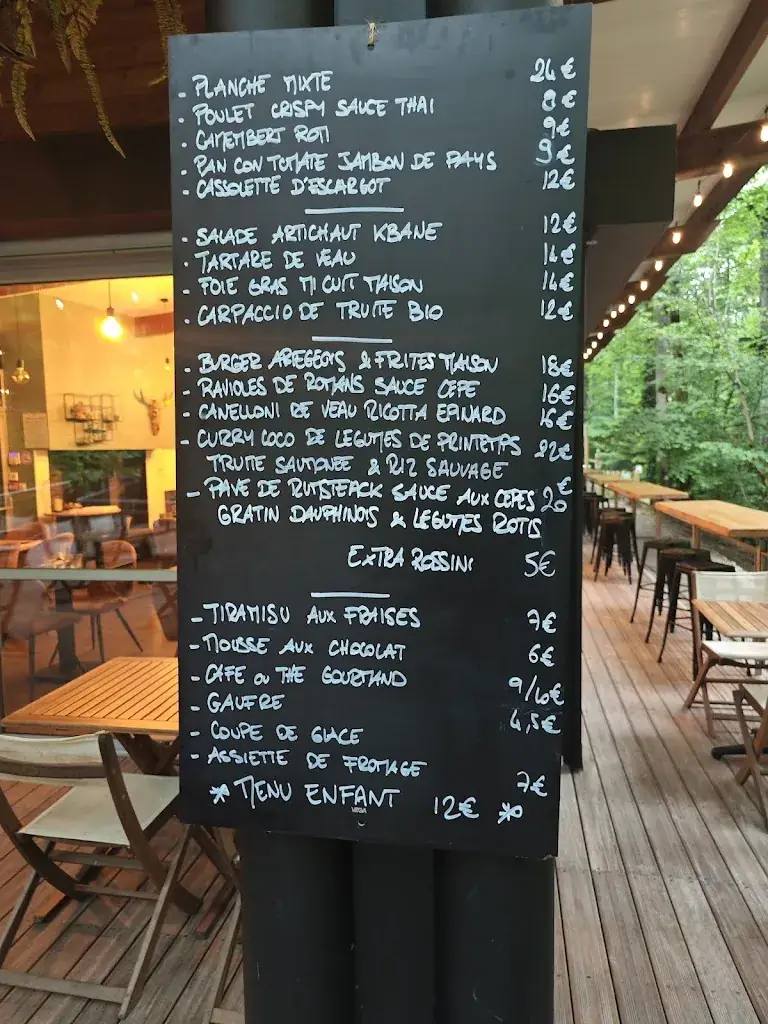 - PLANCHE MIXTE 24€
- POULET CRISPY SAUCE THAI 8€
- CAMEMBERT ROTI 9€
- PAN CON TOMATE JAMBON DE PAYS 9€
- CASSOLETTE D'ESCARGOT 12€
- SALADE ARTICHAUT KBANE 12€
- TARTARE DE VEAU 14€
- FOIE GRAS MI CUIT MAISON 14€
- CARPACCIO DE TRUITE BIO 12€
- BURGER ARIEGEOIS & FRITES MAISON 18€
- RAVIOLES DE ROMANS SAUCE CEPE 16€
- CANELLONI DE VEAU RICOTTA EPINARD 16€
- CURRY COCO DE LEGUMES DE PRINTEMPS 22€
TRUITE SAUMONEE & RIZ SAUVAGE
- PAVE DE RUMSTEACK SAUCE AUX CEPES 26€
GRATIN DAUPHINOIS & LEGUMES ROTIS
EXTRA ROSSINI 5€
- TIRAMISU AUX FRAISES 7€
- MOUSSE AUX CHOCOLAT 6€
- CAFE OU THE GOURMAND 9/10€
- GAUFRE 4,5€
- COUPE DE GLACE
- ASSIETTE DE FROMAGE 7€
* MENU ENFANT 12€ *